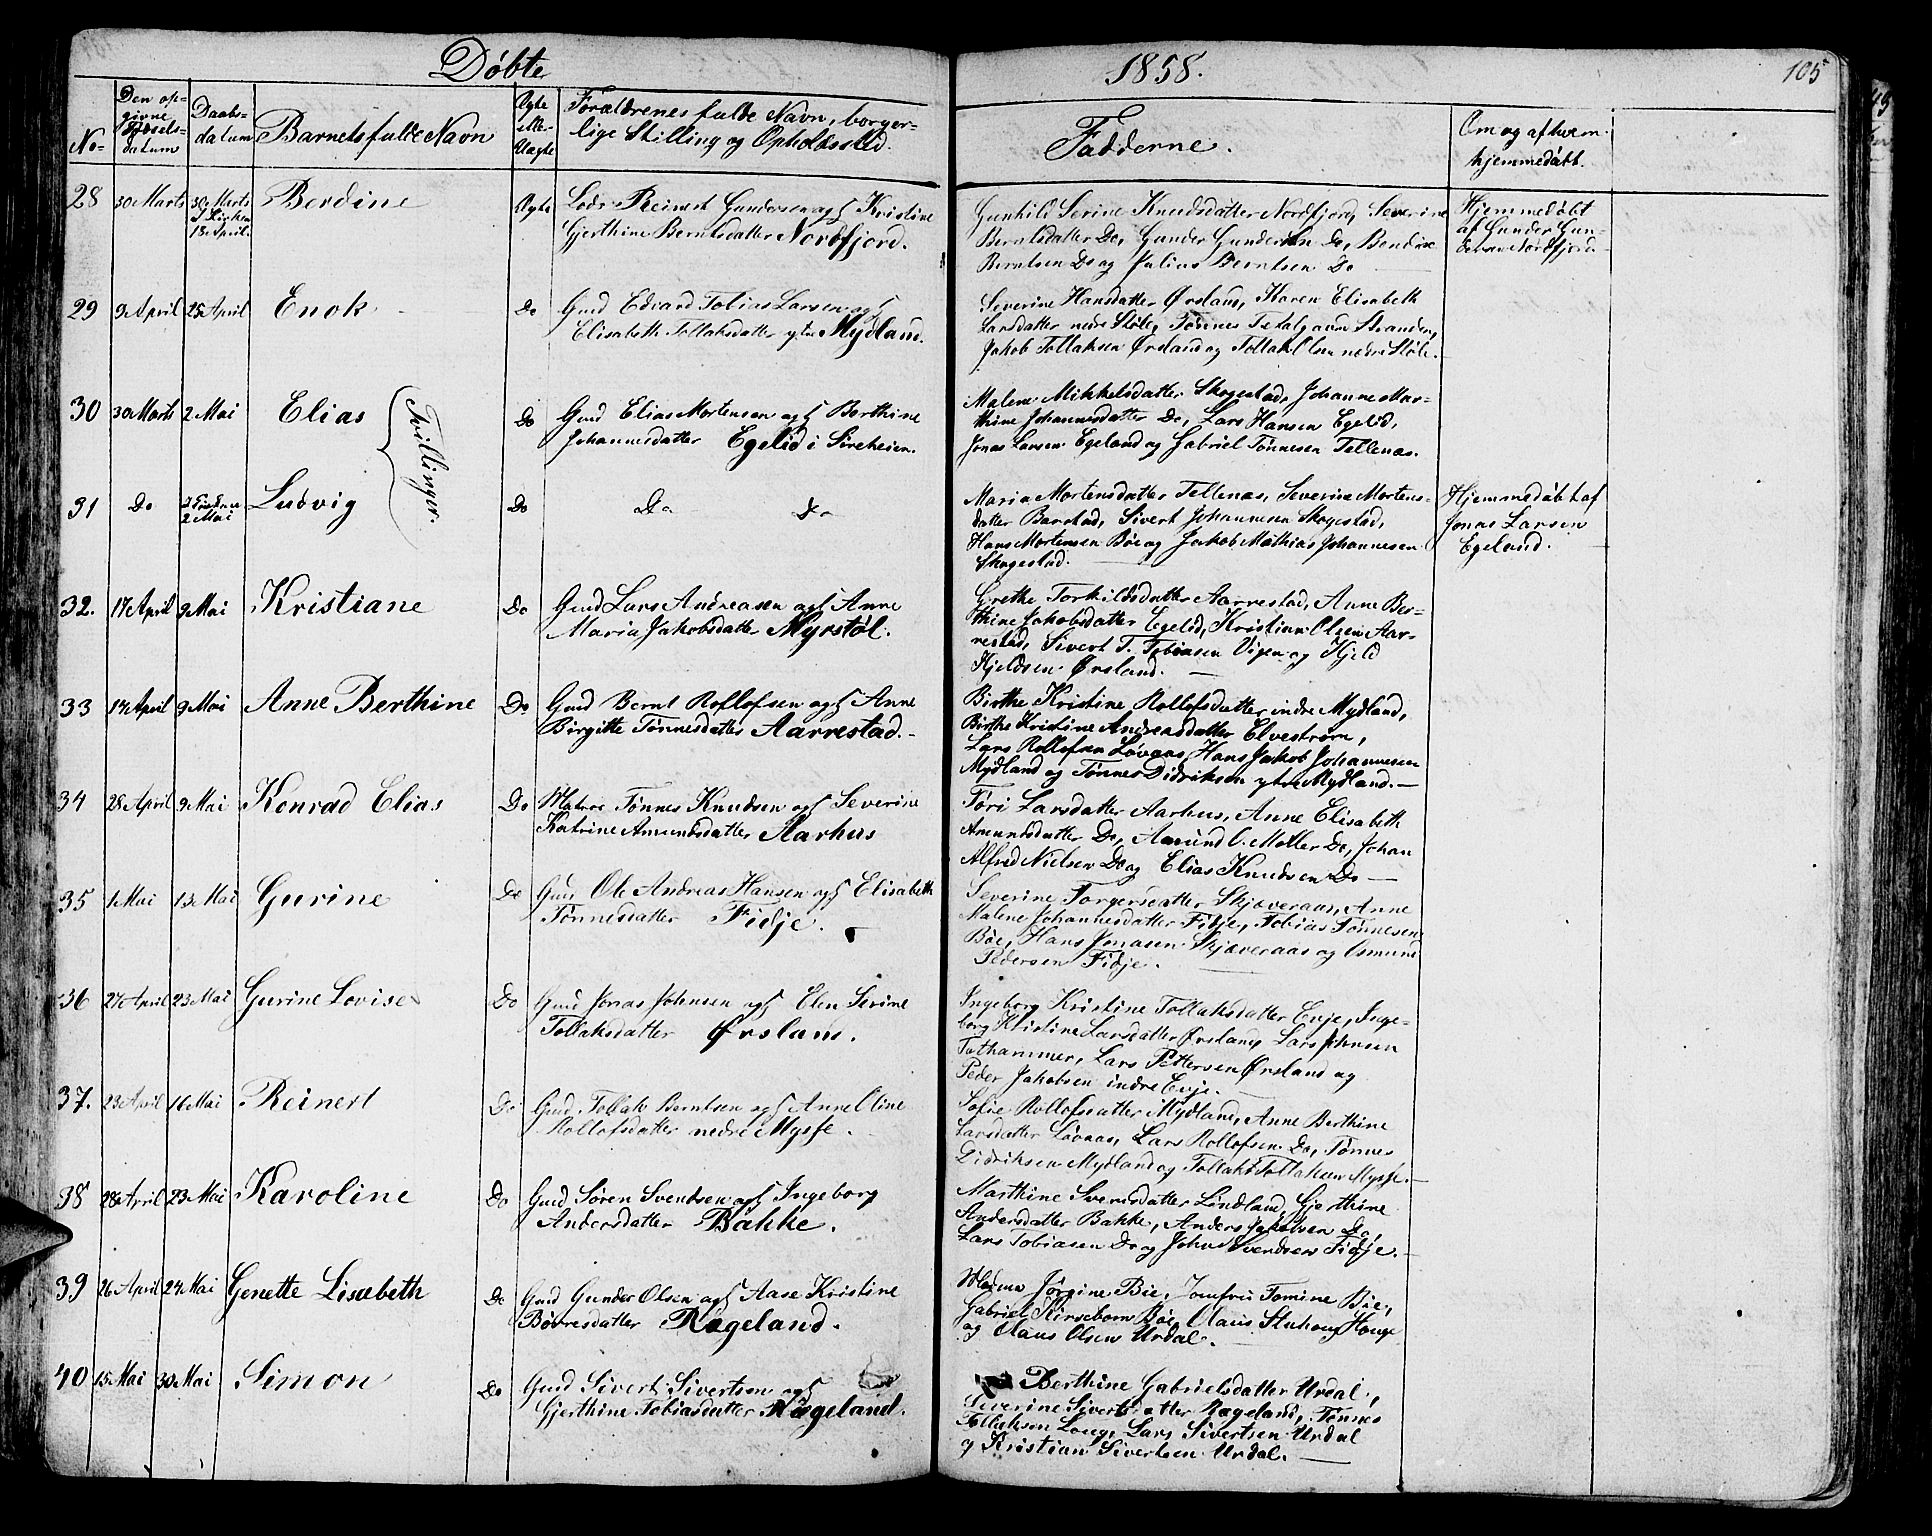 Døbte 1858. 105
No. Den opgivne Fødselsdatum Daabsdatum Barnets fulde Navn Ægte eller Uægte Forældrenes fulde Navn, borgerlige Stilling og Opholdssted. Fadderne. Om og af hvem hjemmedøbt.
28 30 Marts 30 Marts I Kirken 18 April. Berdine Ægte
Lods Reinert Gundersen og H Kristine
Gjerthine Berntsdatter Nordfjord.
Gunhild Serine Knudsdatter Nordfjord, Severine
Berntsdatter Do, Gunder Gundersen Do, Bendix
Berntsen Do og Julius Berntsen Do
Hjemmedøbt
af Gunder Gun-
dersen Nordfjord.
29 9 April 25 April Enok Do
Gmd Edvard Tobias Larsen og H
Elisabeth Tollaksdatter ytre Mydland.
Severine Hansdatter Ørsland, Karen Elisabeth
Larsdatter nedre Støle, Tønnes Stranden,
Jakob Tollaksen Ørsland og Tollak nedre Støle.
30 30 Marts 2 Mai Elias Tvillinger. Do
Gmd Elias Mortensen og H Berthine
Johannesdatter Egelid i Sireheien.
Malene Mikkelsdatter Skogestad, Johanne Mar-
thine Johannesdatter Do, Lars Hansen Egelid,
Jonas Larsen Egeland og Gabriel Tønnesen Tellenæs.
31 Do I Kirken 2 Mai Ludvig Do
Do Do
Maria Mortensdatter Tellenæs, Severine Mortens-
datter Barstad, Sivert Johannesen Skogestad,
Hans Mortensen Bøe og Jakob Mathias Johannesen
Skogestad.
Hjemmedøbt af
Jonas Larsen
Egeland.
32. 17 April 9 Mai Kristiane Do
Gmd Lars Andreasen og H Anne
Maria Jakobsdatter Myrstøl.
Grethe Torkildsdatter Aarrestad, Anne Ber-
thine Jakobsdatter Egelid, Kristian Olsen Aar-
restad, Sivert T. Tobiasen Vigen og Kjeld
Kjeldsen Ørsland.
33 17 April 9 Mai Anne Berthine Do
Gmd Bernt Rollofsen og H Anne
Birgitte Tønnesdatter Aarrestad.
Birthe Kristine Rollofsdatter indre Mydland,
Birthe Kristine Andreasdatter Elvestrøm,
Lars Rollofsen Løvaas, Hans Jakob Johannesen
Mydland og Tønnes Didriksen ytre Mydland.
34 28 April 9 Mai Konrad Elias Do
Matros Tønnes Knudsen og H Severine
Katrine Amundsdatter Aarhus
Tøri Larsdatter Aarhus, Anne Elisabeth
Amundsdatter Do, Amund O. Møller Do, Johan
Alfred Nielsen Do og Elias Knudsen Do
35 1 Mai 13 Mai Gurine Do
Gmd Ole Andreas Hansen og H Elisabeth
Tønnesdatter Fidje.
Severine Torgersdatter Skjæveraas, Anne
Malene Johannesdatter Fidje, Tobias Tønnesen
Bøe, Hans Jonasen Skjæveraas og Osmund
Pedersen Fidje.
36 27 April 23 Mai Gurine Lovise Do
Gmd Jonas Johnsen og H Elen Serine
Tollaksdatter Ørsland.
Ingeborg Kristine Tollaksdatter Evje, Inge-
borg Kristine Larsdatter Ørsland, Lars Johnsen
Tothammer, Lars Pettersen Ørsland og
Peder Jakobsen indre Evje.
37. 23 April 16 Mai Reinert Do
Gmd Tollak Berntsen og H Anne Eline
Rollofsdatter nedre Mysse.
Sofie Rollofsdatter Mydland, Anne Berthine
Larsdatter Løvaas, Lars Rollofsen Do, Tønnes
Didriksen Mydland og Tollak Tollaksen Mysse.
38 28 April 23 Mai Karoline Do
Gmd Søren Svendsen og H Ingeborg
Andersdatter Bakke.
Marthine Svensdatter Lindland, Gjerthine
Andersdatter Bakke, Anders Jakobsen Do,
Lars Tobiasen Do og John Svendsen Fidje.
39 26 April 24 Mai Genette Lisabeth Do
Gmd Gunder Olsen og H Aase Kristine
Børresdatter Rægeland.
Madme Jørgine Bøe, Jomfru Tomine Bøe,
Gabriel Kirsebom Bøe, Olaus Stuhoug Houge
og Olaus Olsen Urdal.
40 15 Mai 30 Mai Simon Do
Gmd Sivert Sivertsen og H
Gjerthine Tobiasdatter Rægeland.
Berthine Gabrielsdatter Urdal,
Severine Sivertsdatter Rægeland, Tønnes
Tollaksen Loug, Lars Sivertsen Urdal
og Kristian Sivertsen Urdal.